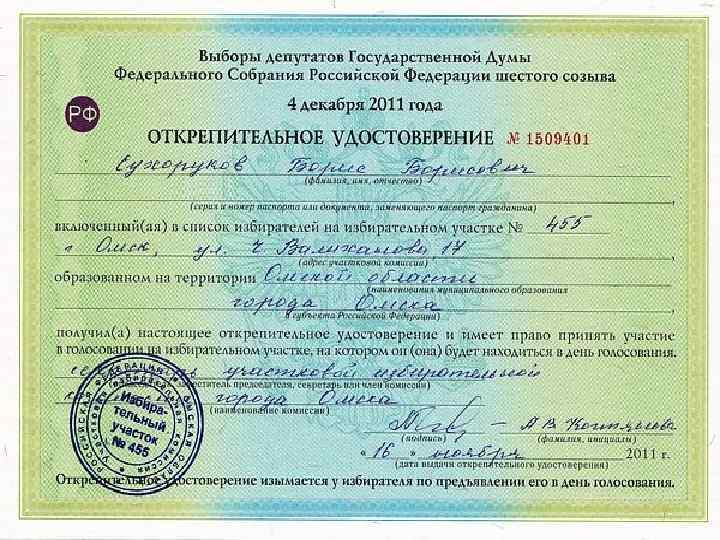 Выборы депутатов Государственной Думы
Федерального Собрания Российской Федерации шестого созыва
РФ
4 декабря 2011 года
ОТКРЕПИТЕЛЬНОЕ УДОСТОВЕРЕНИЕ № 1509401
Сухоруков Борис Борисович
(фамилия, имя, отчество)
(серия и номер паспорта или документа, заменяющего паспорт гражданина)
включенный(ая) в список избирателей на избирательном участке № 455
г. Омск, ул. Ч. Валиханова, 14
(адрес участковой комиссии)
образованном на территории Омской области
(наименования муниципального образования
города Омска
и субъекта Российской Федерации)
получил(а) настоящее открепительное удостоверение и имеет право принять участие
в голосовании на избирательном участке, на котором он (она) будет находиться в день голосования.
участковой избирательной
председателя, секретарь или член комиссии)
города Омска
(наименование комиссии)
А В
(подпись) (фамилия, инициалы)
« 16 » ноября 2011 г.
(дата выдачи открепительного удостоверения)
Открепительное удостоверение изымается у избирателя по предъявлении его в день голосования.
Избира-
тельный
участок
№ 455